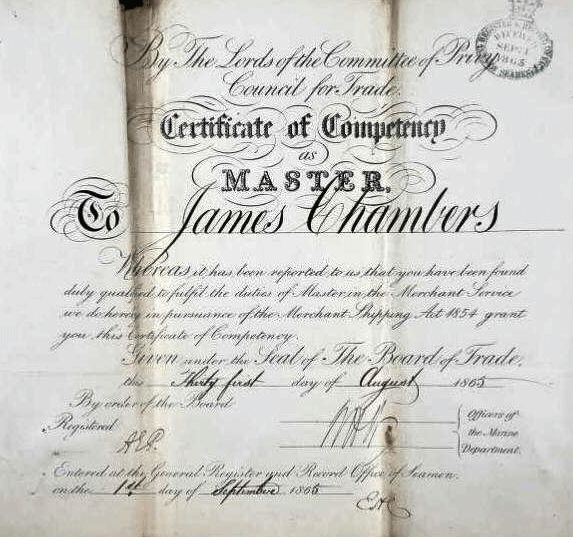 By The Lords of the Committee of Privy
Council for Trade.
Certificate of Competency
as
MASTER,
To James Chambers
Whereas it has been reported to us that you have been found
duly qualified to fulfil the duties of Master in the Merchant Service
we do hereby in pursuance of the Merchant Shipping Act 1854 grant
you this Certificate of Competency.
Given under the Seal of The Board of Trade.
this Thirty first day of August 1865
By order of the Board
Registered
Officers of
the Marine
Department.
Entered at the General Register and Record Office of Seamen.
on the 1st day of September 1865
RECEIVED
SEP 1
1865
OF SEAMEN